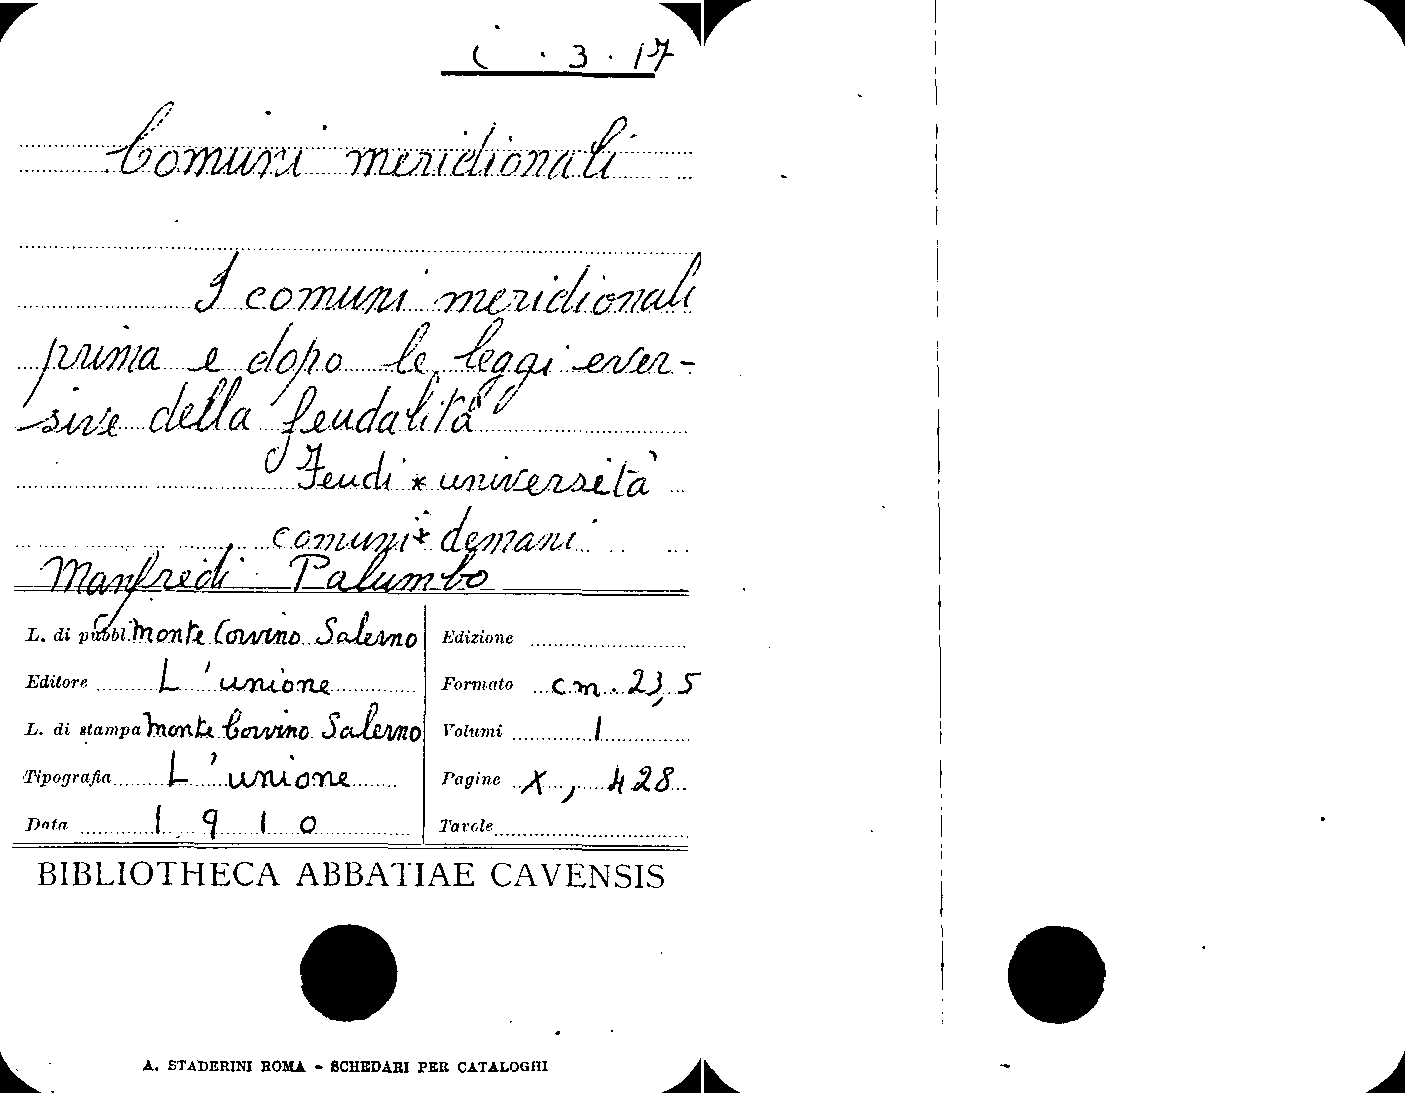 i . 3 . 17
Comuni meridionali
I comuni meridionali
prima e dopo le leggi ever-
sive della feudalità
Feudi * università
comuni * demani
Manfredi Palumbo
L. di pubbl. Monte Corvino Salerno
Edizione
Editore L'unione
Formato cm. 23,5
L. di stampa Monte Corvino Salerno
Volumi 1
Tipografia L'unione
Pagine X, 428
Data 1910
Tavole
BIBLIOTHECA ABBATIAE CAVENSIS
A. STADERINI ROMA - SCHEDARI PER CATALOGHI